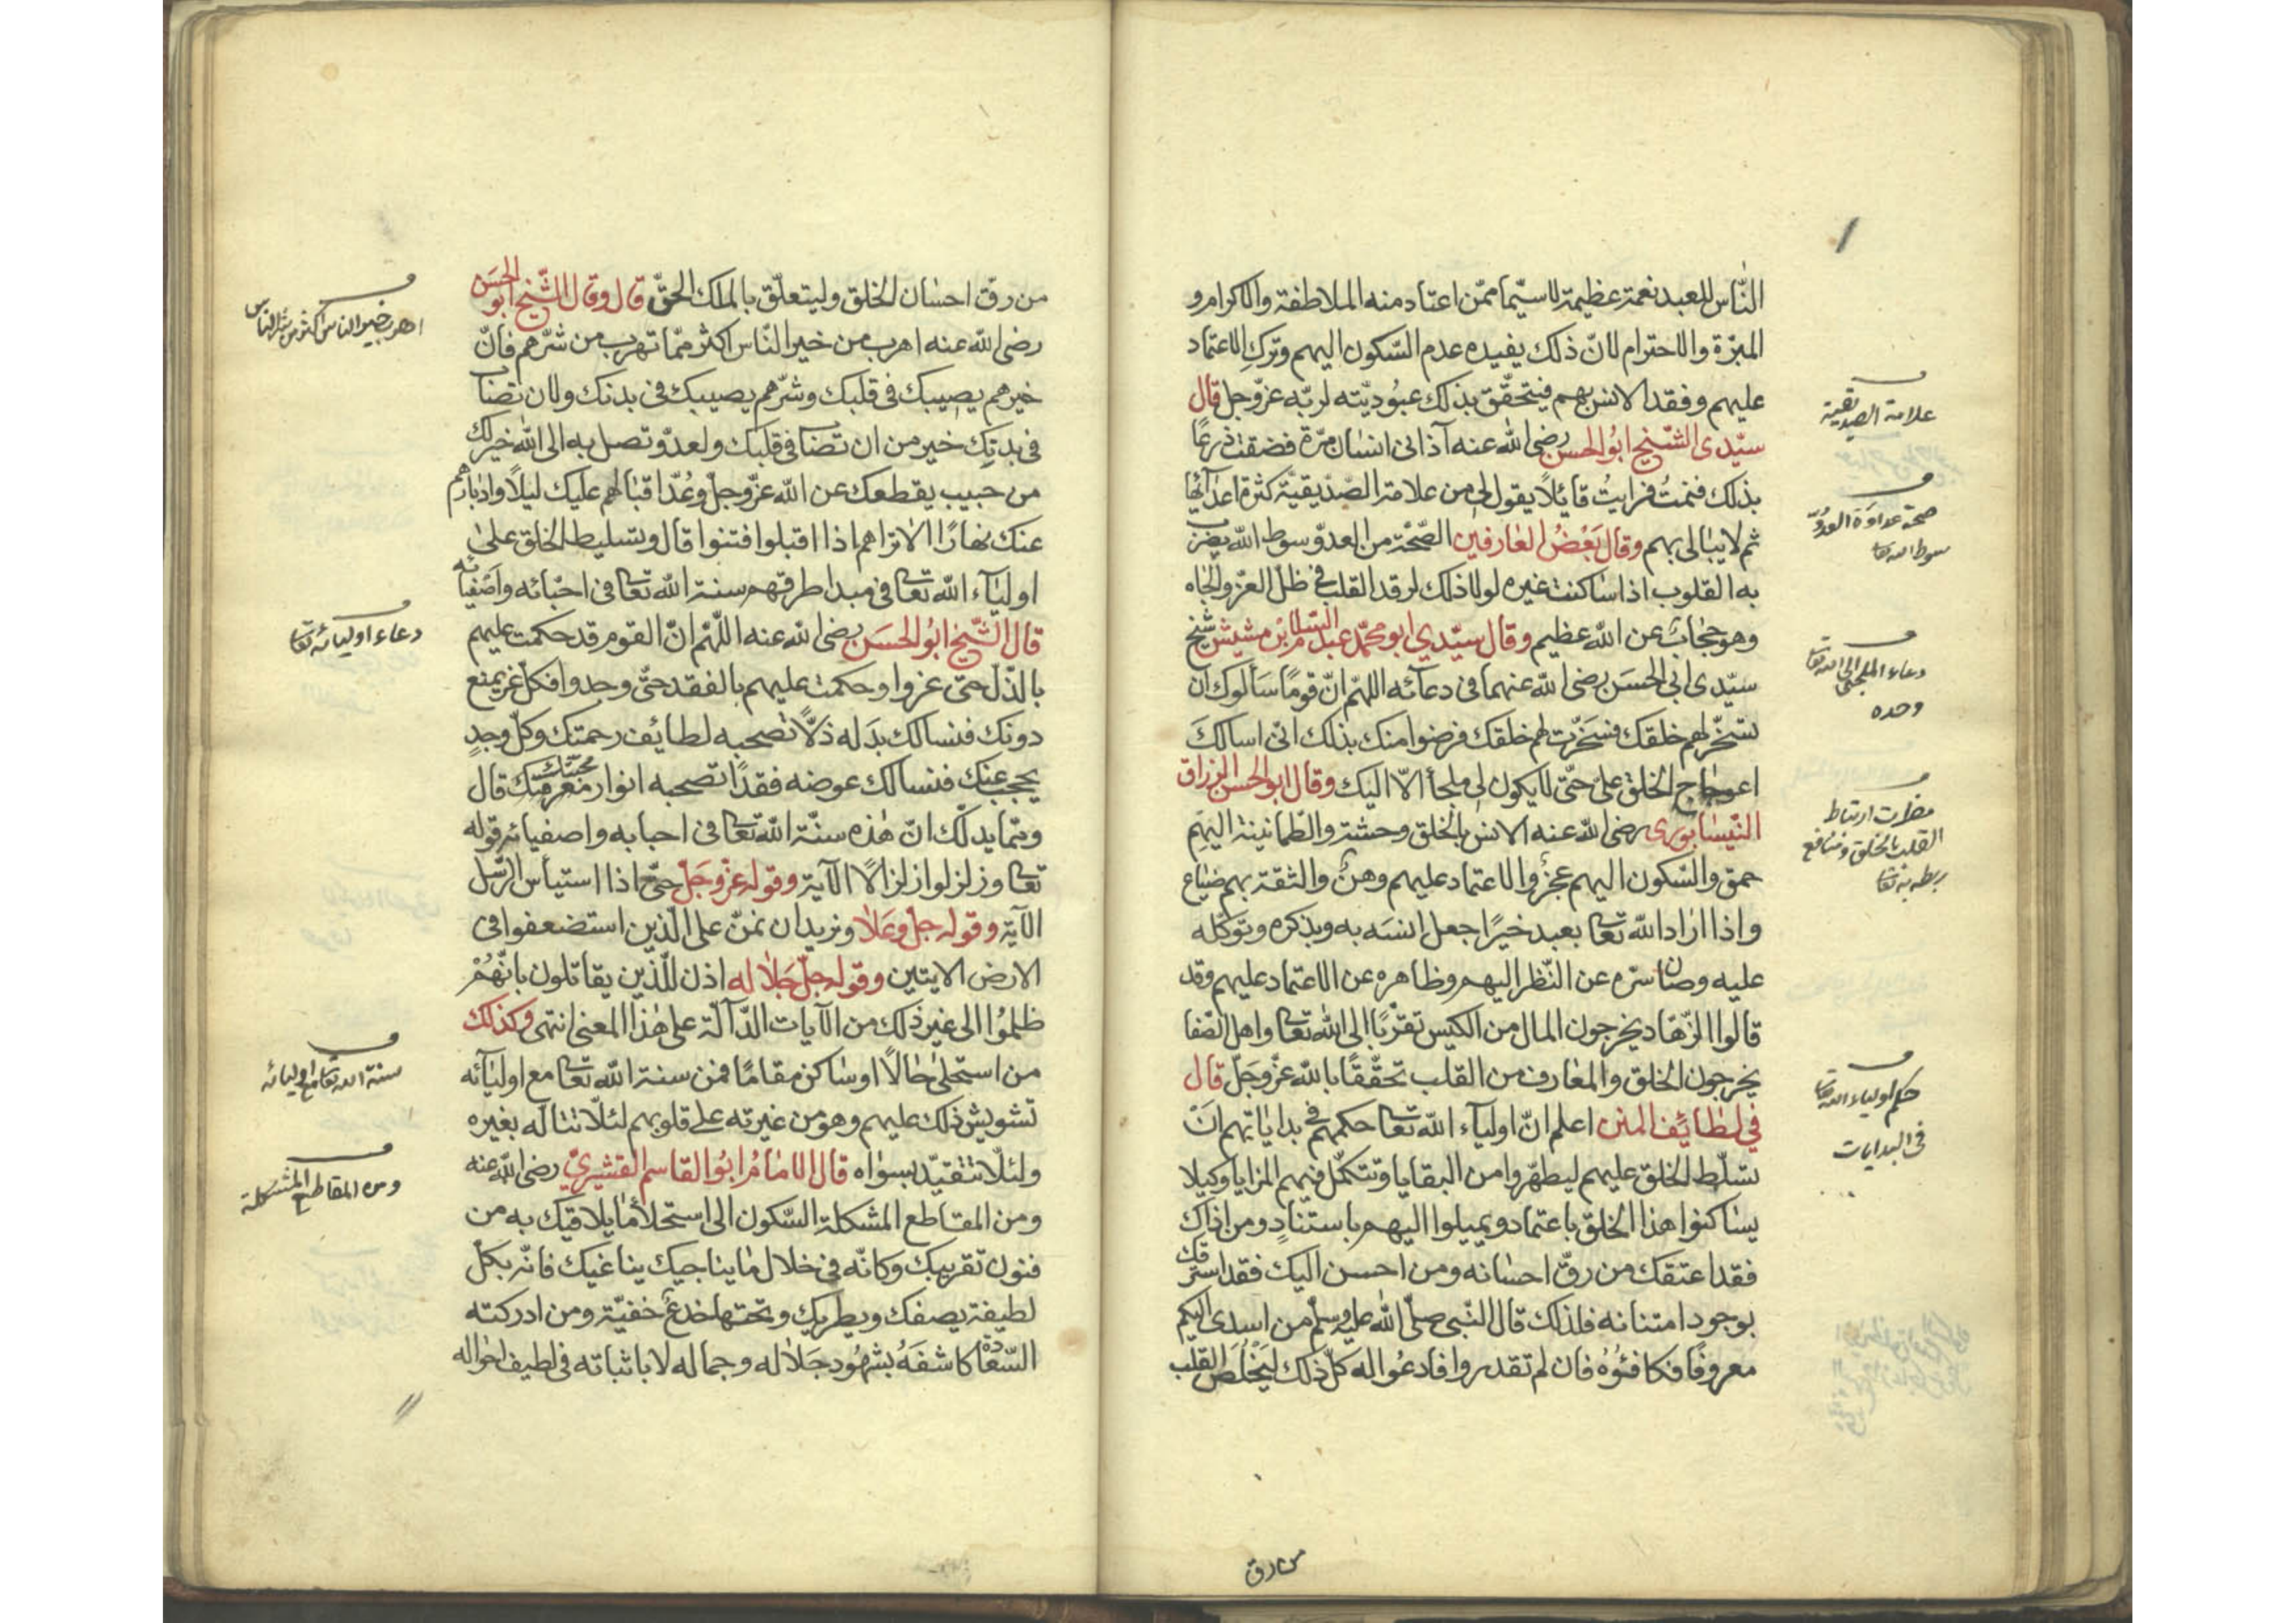 النّاس للعبد نعمة عظيمة لا سيّما ممّن اعتاد منه الملاطفة والاكرام و
المبرّة والاحترام لانّ ذلك يفيده عدم السّكون اليهم وترك الاعتماد
عليهم وفقد الانس بهم فيتحقّق بذلك عبوديّته لربّه عزّ وجل قال
سيّدى الشّيخ ابو الحسن رضى الله عنه آذانى انسان مرّة فضقت ذرعًا
بذلك فنمتُ فرايتُ قائلًا يقول لى من علامة الصّدّيقيّة كثرة اعدآئها
ثم لا يبالى بهم وقال بَعْضُ العارفين الصّحّة من العدوّ سوط الله يضرب
به القلوب اذا ساكنت غيره لولا ذلك لرقد القلب فى ظلّ العزّ والجاه
وهو حجاب عن الله عظيم وقال سيّدي ابو محمّد عبد السّلام ابن مشيش شيخ
سيّدى ابى الحسَن رضى الله عنهما فى دعآئه اللهمّ انّ قومًا سَألوك ان
تسَخّر لهم خلقك فسَخّرت لهم خلقك فرضوا منك بذلك انّى اسالكَ
اعوجاج الخلق علىّ حتّى لا يكون لى ملجأ الّا اليك وقال ابو الحسن الورّاق
النّيسابورى رضى الله عنه الانس بالخلق وحشة والطّمانينة اليهم
حمق والسّكون اليهم عجزٌ والاعتماد عليهم وهنٌ والثقة بهم ضياع
واذا اراد الله تعا بعبد خيرًا جعل انسَه به وبذكره وتوكّله
عليه وصان سرّه عن النّظر اليهم وظاهره عن الاعتماد عليهم وقد
قالوا الزّهّاد يخرجون المال من الكيس تقرّبًا الى الله تعا واهل الصّفا
يخرجون الخلق والمعارف من القلب تحقّقًا بالله عزّ وجَلّ قال
فى لطائف المنن اعلم انّ اوليآء الله تعا حكمهم فى بداياتهم انْ
تسَلّط الخلق عليهم ليطهّروا من البقايا وتتكمّل فيهم المزايا وكيلا
يساكنوا هذا الخلق باعتماد ويميلوا اليهم باستنادٍ ومن اذاك
فقد اعتقك من رقّ احسانه ومن احسن اليك فقد استرقك
بوجود امتنانه فلذلك قال النّبى صلّى الله عليه وسلّم من اسدى اليكم
معروفًا فكافئوُه فان لم تقدروا فادعوا له كلّ ذلك ليَخْلُصَ القلب
من رق
علامة الصديقية
صحة عداوة العدوّ
سوط الله تعا
دعاء الملتجئ الى الله تعا
وحده
مضرات ارتباط
القلب بالخلق ومنافع
ربطه به تعا
حكم اولياء الله تعا
فى البدايات
من رقّ احسان الخلق وليتعلّق بالملك الحقّ قال وقال الشّيخ ابو الحسَن
رضى الله عنه اهرب من خير النّاس اكثر ممّا تهرب من شرّهم فانّ
خيرهم يصيبك فى قلبك وشرّهم يصيبك فى بدنك ولان تصاب
فى بدنك خير من ان تصاب فى قلبك ولعدوّ تصل به الى الله خير لك
من حبيب يقطعك عن الله عزّ وجلّ وعُدّ اقبالهم عليك ليلًا وادبارهم
عنك نهارًا الا تراهم اذا اقبلوا فتنوا قال وتسليط الخلق على
اوليآء الله تعا فى مبدا طرقهم سنة الله تعا فى احبّائه واصْفيائه
قال الشّيخ ابوُ الحسَن رضى الله عنه اللّهمّ انّ القوم قد حكمت عليهم
بالذّل حتّى عزوا وحكمت عليهم بالفقد حتّى وجدوا فكلّ عزّ يمنع
دونك فنسالك بدَله ذلًّا تصحبه لطائف رحمتك وكلّ وجدٍ
يحجب عنك فنسالك عوضه فقدًا تصحبه انوار محبّتك قال
وممّا يدلّك انّ هٰذه سنّة الله تعا فى احبابه واصفيائه قوله
تعا وزلزلوا زلزالًا الآية وقوله عزّ وجَلّ حتّى اذا استيأس الرّسل
الآية وقوله جلّ وعَلَا ونريد ان نمنّ على الّذين استضعفوا فى
الارض الايتين وقوله جلّ جَلاله اذن للّذين يقاتلون بانّهُمْ
ظلموُا الى غير ذلك من الآيات الدّآلّة على هٰذا المعنى انتهى وكذلك
من استحلى حالًا او ساكن مقامًا فمن سنة الله تعا مع اوليآئه
تشويش ذلك عليهم وهو من غيرته على قلوبهم لئلّا تتالّه بغيره
ولئلّا تتقيّد بسواه قال الامامُ ابوُ القاسم القشيريّ رضى الله عنه
ومن المقاطع المشكلة السّكون الى استحلاء ما يلاقيك به من
فنون تقريبك وكانّه فى خلال ما يناجيك يناغيك فانّه بكلّ
لطيفة يصفك ويطريك وتحتها خدعٌ خفيّة ومن ادركته
السّعادة كاشفَهُ بشهُود جَلاله وجماله لا باثباته فى لطيف احواله
اهرب خير الناس اكثر من شر الناس
دعاء اوليائه تعا
سنة الله تعا مع اوليائه
ومن المقاطع المشكلة